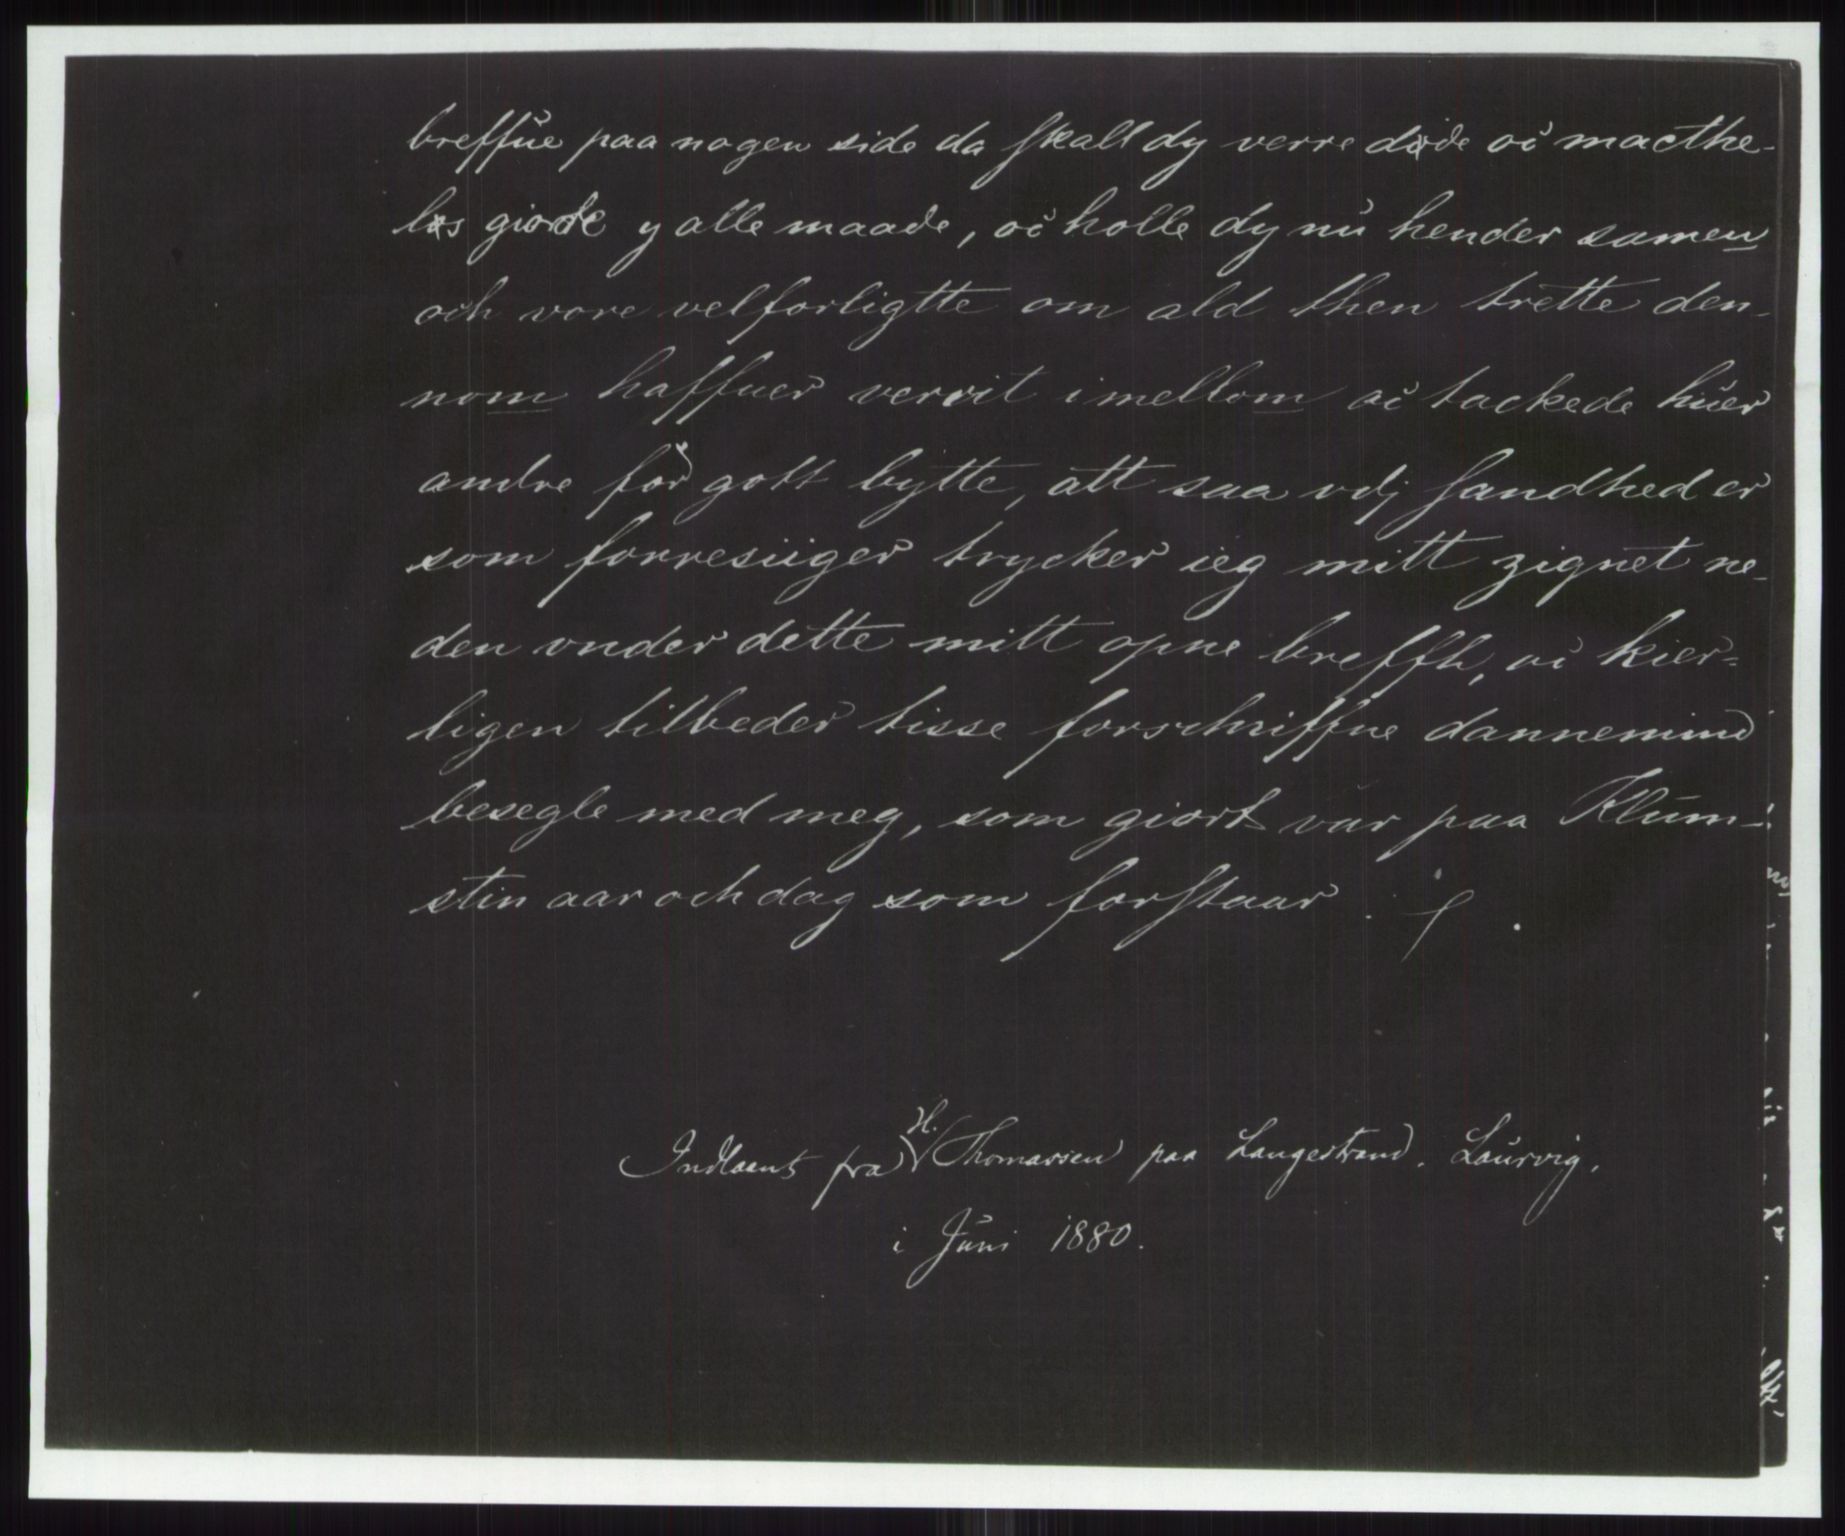 breffue paa nogen side da skall dy verre døde oc macthe-
løs giorde y alle maade, oc holle dy nu hender samen
och vore velforligtte om ald then trette den-
nom haffuer verrit imellom oc tackede huer
andre for gott bytte, att saa vdj sandhed er
som forresiiger trycker ieg mitt zignet ne-
den vnder dette mitt opne breffh, oc kier-
ligen tilbeder tisse forschriffne dannemend
besegle med meg, som giort var paa Klum-
stin aar och dag som forstaar ./.
Indlaant fra H. Thomassen paa Langestrand. Laurvig.
i Juni 1880.